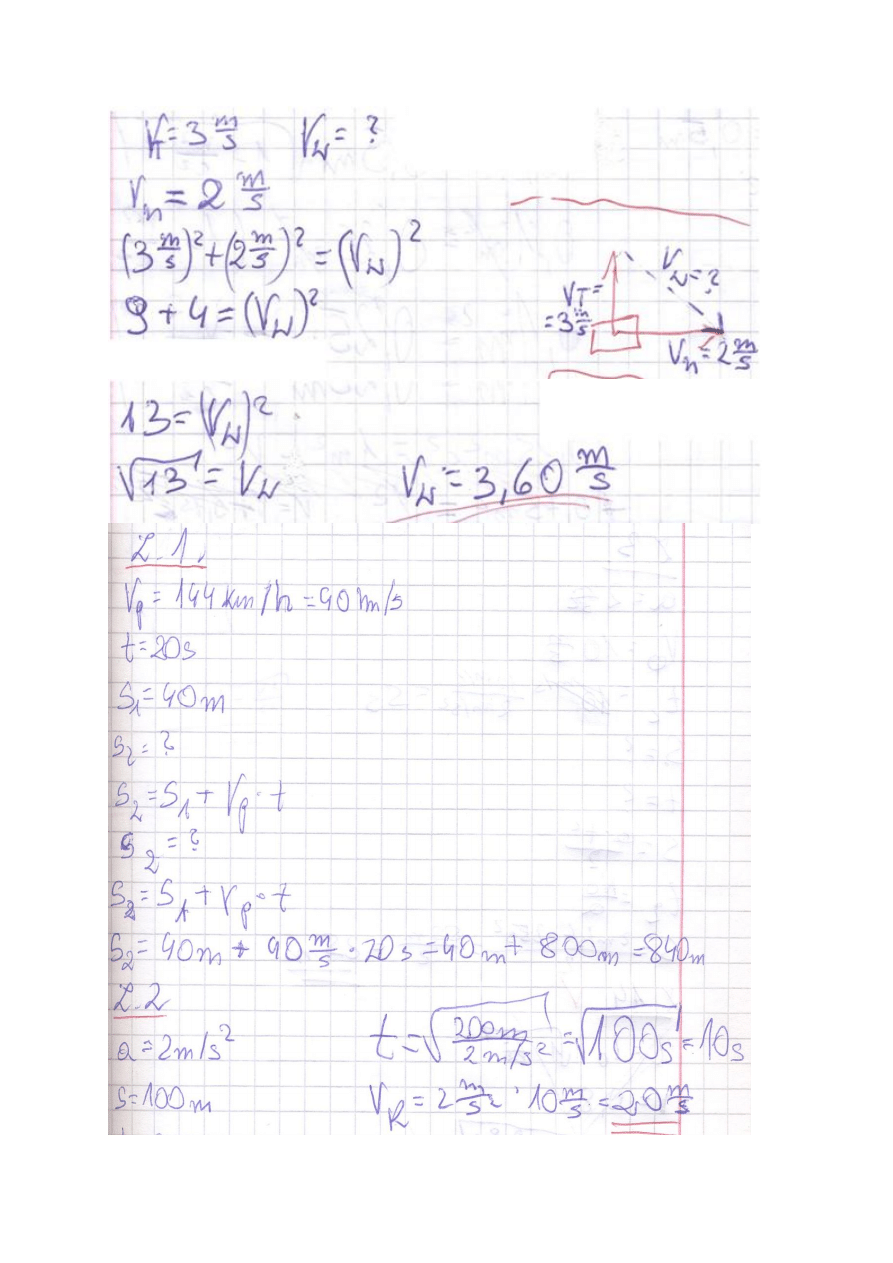 V_T = 3 m/s V_w = ?
V_n = 2 m/s
(3 m/s)² + (2 m/s)² = (V_w)²
9 + 4 = (V_w)²
V_T =
= 3 m/s
V_w = ?
V_n = 2 m/s
13 = (V_w)²
√13 = V_w V_w = 3,60 m/s
Z.1.
V_p = 144 km/h = 40 m/s
t = 20s
S_1 = 40 m
S_2 = ?
S_2 = S_1 + V_p · t
S_2 = ?
S_2 = S_1 + V_p · t
S_2 = 40m + 40 m/s · 20s = 40m + 800m = 840m
Z.2
a = 2m/s²
s = 100m
t = √(200m / 2m/s²) = √100s = 10s
V_k = 2 m/s² · 10 m/s = 20 m/s